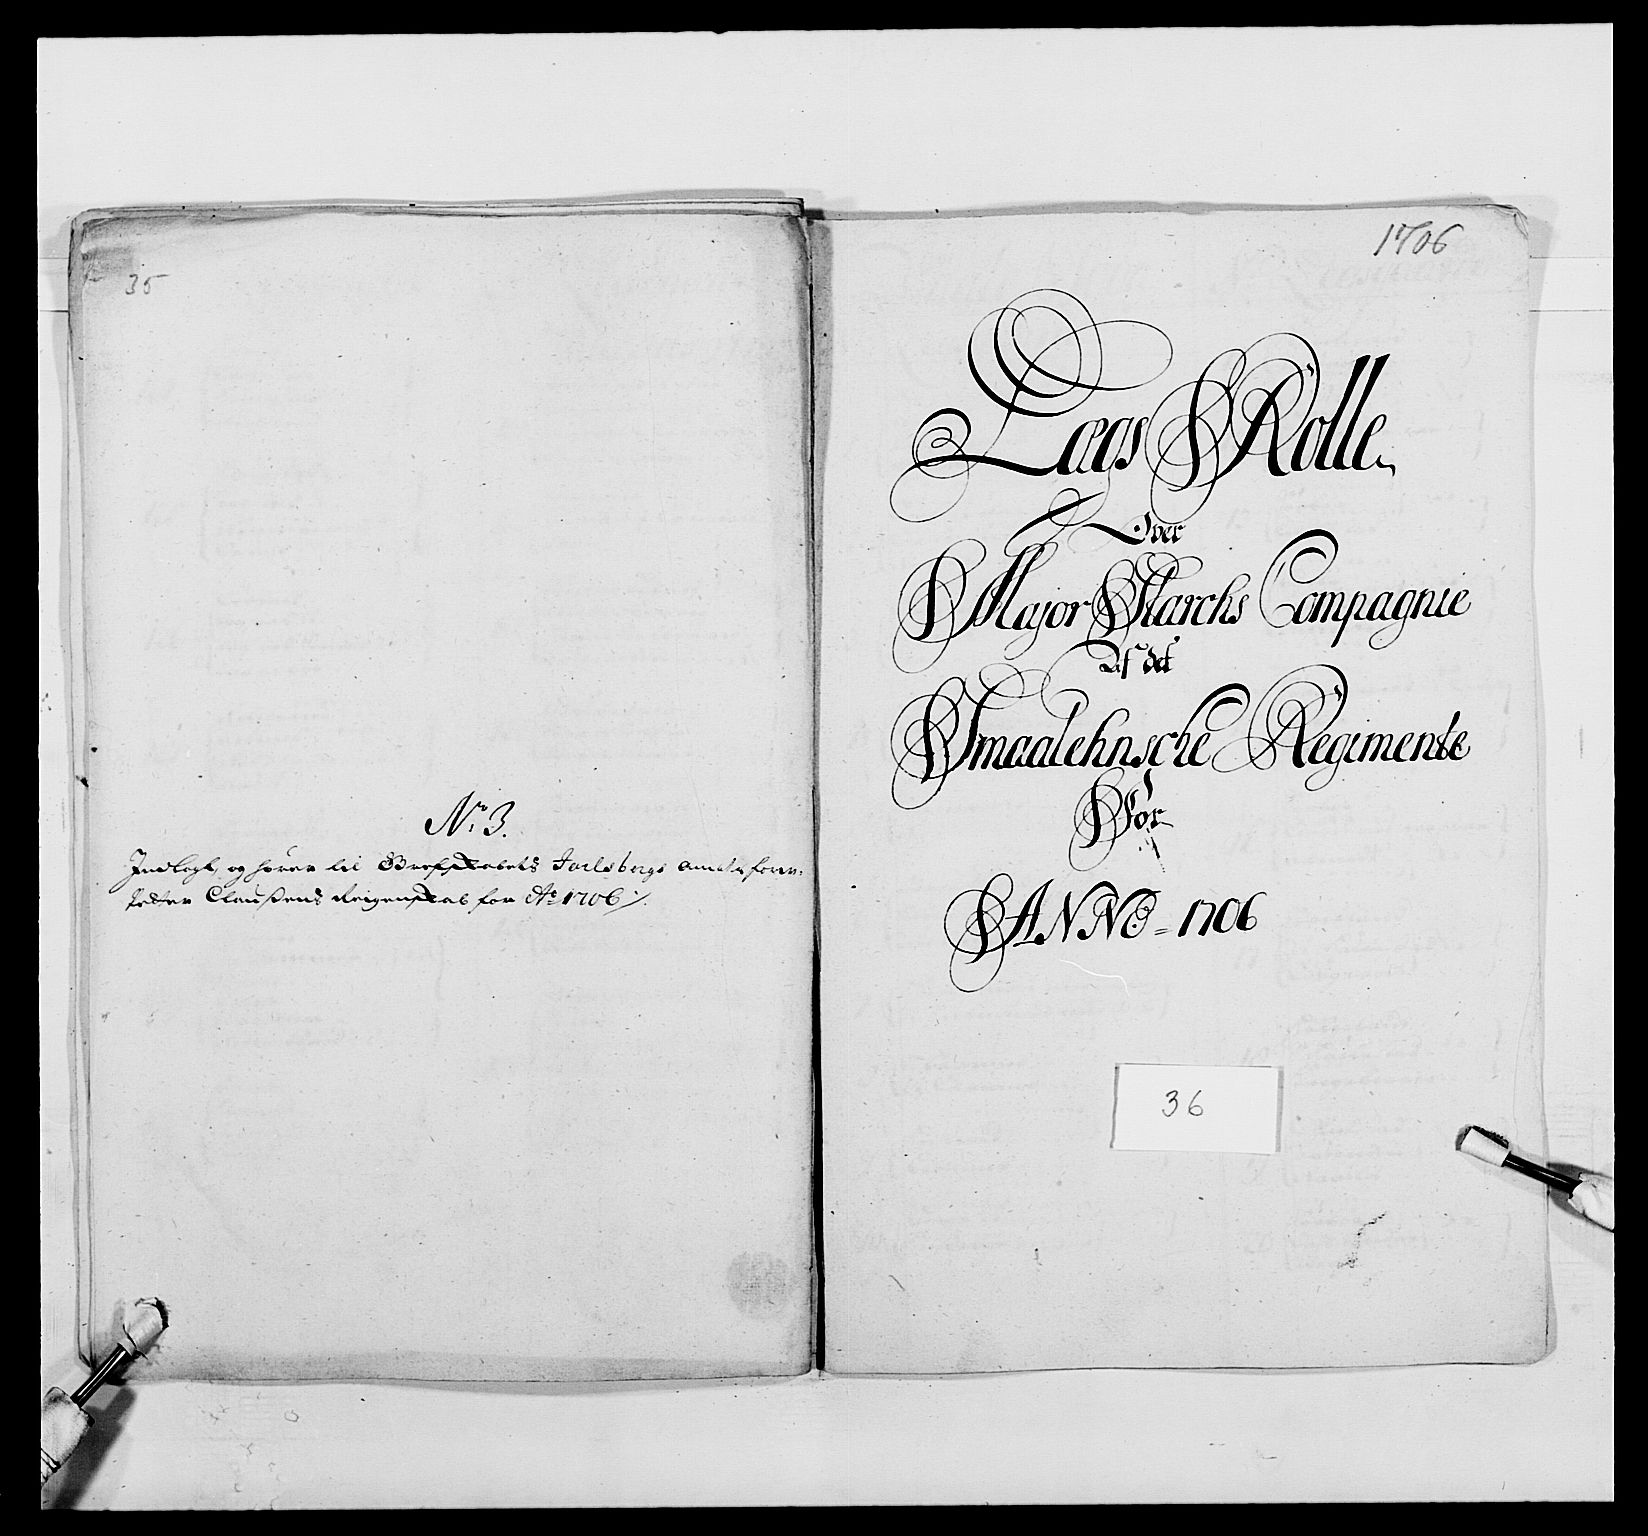 35
No 3.
Indlagt, og hörer til Grefskabets Jarlsbergs Amts for:
Claussens Reigenskab for Ao 1706 ./.
1706
Laegs Rolle
Over
Major Marchs Compagnie
Af det
Smaalehnsche Regimente
For
ANNO = 1706
36